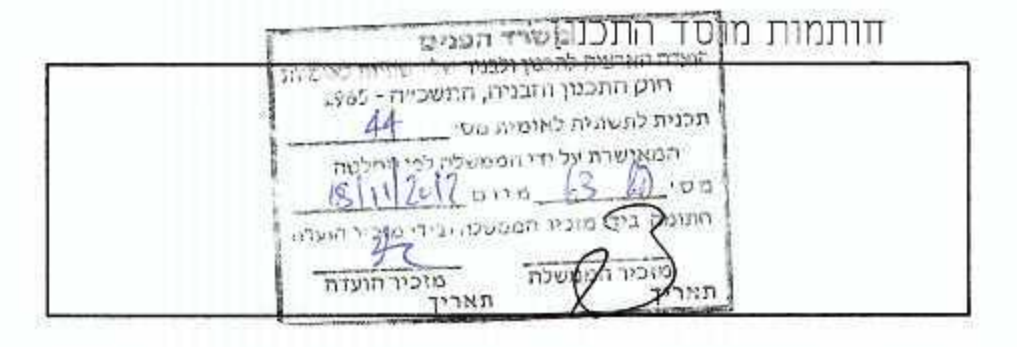 חותמות מוסד התכנון
משרד הפנים
חוק התכנון והבניה, התשכ״ה - 1965
תכנית לתשתית לאומית מס׳ 44
המאושרת על ידי הממשלה לפי החלטה
מס׳ מיום 18/11/2012
חתומה בידי מזכיר הממשלה ובידי מזכיר הועדה
מזכיר הממשלה מזכיר הועדה
תאריך תאריך